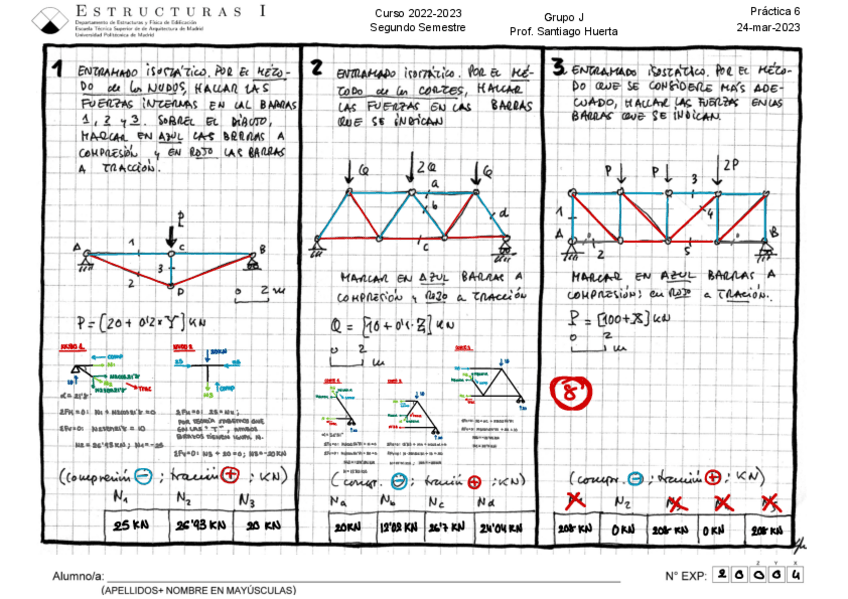 ESTRUCTURAS I
Departamento de Estructuras y Física de Edificación
Escuela Técnica Superior de de Arquitectura de Madrid
Universidad Politécnica de Madrid
Curso 2022-2023
Segundo Semestre
Grupo J
Prof. Santiago Huerta
Práctica 6
24-mar-2023
1 ENTRAMADO ISOSTÁTICO. POR EL MÉTO-
DO de los NUDOS, HALLAR LAS
FUERZAS INTERNAS EN LAL BARRAS
1, 2 y 3. SOBRE EL DIBUJO,
MARCAR EN AZUL LAS BARRAS A
COMPRESIÓN y EN ROJO LAS BARRAS
A TRACCIÓN.
P
A
1
C
B
3
2
D
0 2 m
P=[20+0'2×Y]KN
(compresión ⊖ ; tracción ⊕ ; KN)
N1 N2 N3
25 KN 26'93 KN 20 KN
2 ENTRAMADO ISOSTÁTICO. POR EL MÉ-
TODO de los CORTES, HALLAR
LAS FUERZAS EN LAS BARRAS
QUE SE INDICAN
Q 2Q Q
a
b
d
c
MARCAR EN AZUL BARRAS A
COMPRESIÓN y ROJO A TRACCIÓN
Q=[10+0'1·Z]KN
0 2
m
(compr. ⊖ ; tracción ⊕ ; KN)
Na Nb Nc Nd
20KN 12'02 KN 26'7 KN 24'04 KN
3 ENTRAMADO ISOSTÁTICO. POR EL MÉTO-
DO QUE SE CONSIDERE MÁS ADE-
CUADO, HALLAR LAS FUERZAS EN LAS
BARRAS QUE SE INDICAN.
P P 2P
3
1
4
A
2
5
B
MARCAR EN AZUL BARRAS A
COMPRESIÓN; en ROJO a TRACIÓN.
P=[100+X]KN
0 2
m
8
(compr. ⊖ ; tracción ⊕ ; KN)
N2
208 KN 0 KN 208 KN 0 KN 208 KN
Alumno/a:
(APELLIDOS+ NOMBRE EN MAYÚSCULAS)
N° EXP:
Z Y X
2 0 0 0 4